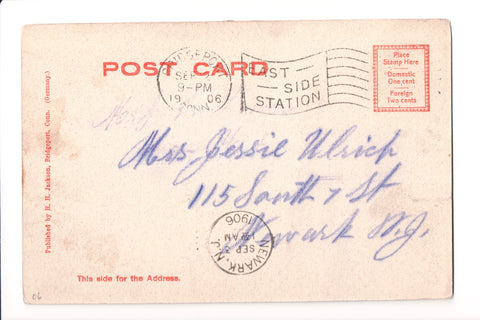 POST CARD
BRIDGEPORT
SEP
9-PM
1906
CONN.
EAST
SIDE
STATION
Place
Stamp Here
Domestic
One cent
Foreign
Two cents
Miss Jessie Ulrich
115 South 7 St
Newark N.J.
NEWARK, N.J.
SEP 3
AM
1906
Published by H. H. Jackson, Bridgeport, Conn. (Germany.)
This side for the Address.
06